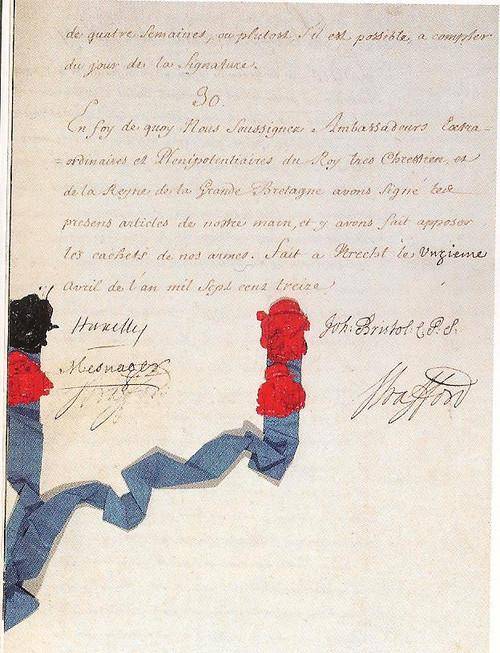 de quatre Semaines, ou plutost s'il est possible, a compter
du jour de la Signature.
30.
En foy de quoy Nous Soussignez Ambassadeurs Extra-
=ordinaires et Plenipotentiaires du Roy tres Chrestien, et
de la Reyne de la Grande Bretagne avons signé les
presens articles de nostre main, et y avons fait apposer
les cachets de nos armes. Fait a Utrecht le Unzieme
Avril de l'an mil sept cent treize
Huxelles
Joh. Bristol C.P.S.
Mesnager
Strafford